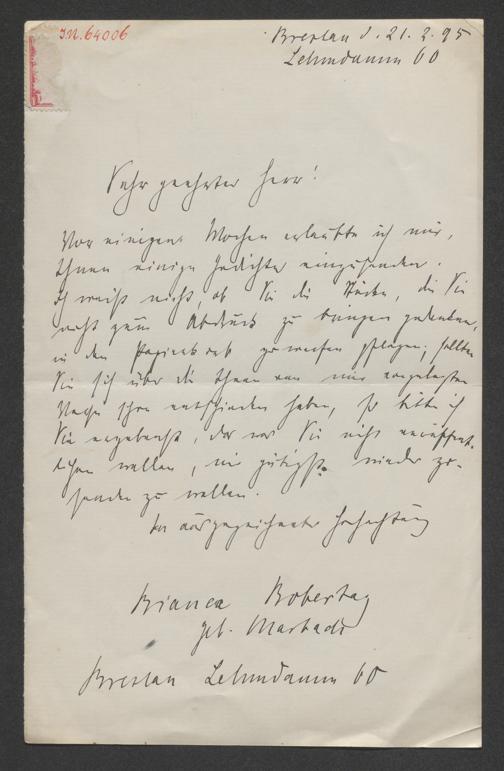 I.N. 64006
Breslau d. 21. 2. 95
Lehmdamm 60
Sehr geehrter Herr!
Vor einigen Wochen erlaubte ich mir,
Ihnen einige Gedichte einzusenden.
Ich weiß nicht, ob Sie die Stücke, die Sie
nicht zum Abdruck zu bringen gedenken,
in den Papierkorb zu werfen pflegen; sollten
Sie sich über die Ihnen von mir vorgelegten
Verse schon entschieden haben, so bitte ich
Sie ergebenst, das was Sie nicht veröffent-
lichen wollen, mir gütigst wieder zu-
senden zu wollen.
In ausgezeichneter Hochachtung
Bianca Bobertag
geb.
Breslau Lehmdamm 60